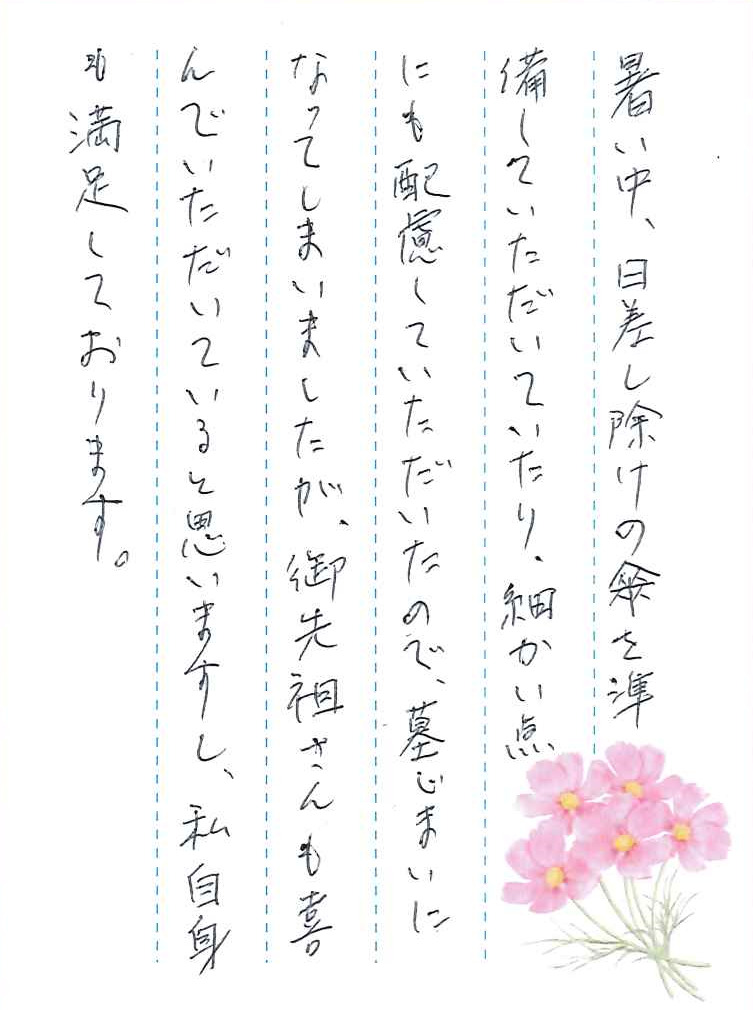 暑い中、日差し除けの傘を準
備していただいていたり、細かい点
にも配慮していただいたので、墓じまいに
なってしまいましたが、御先祖さんも喜
んでいただいていると思いますし、私自身
も満足しております。